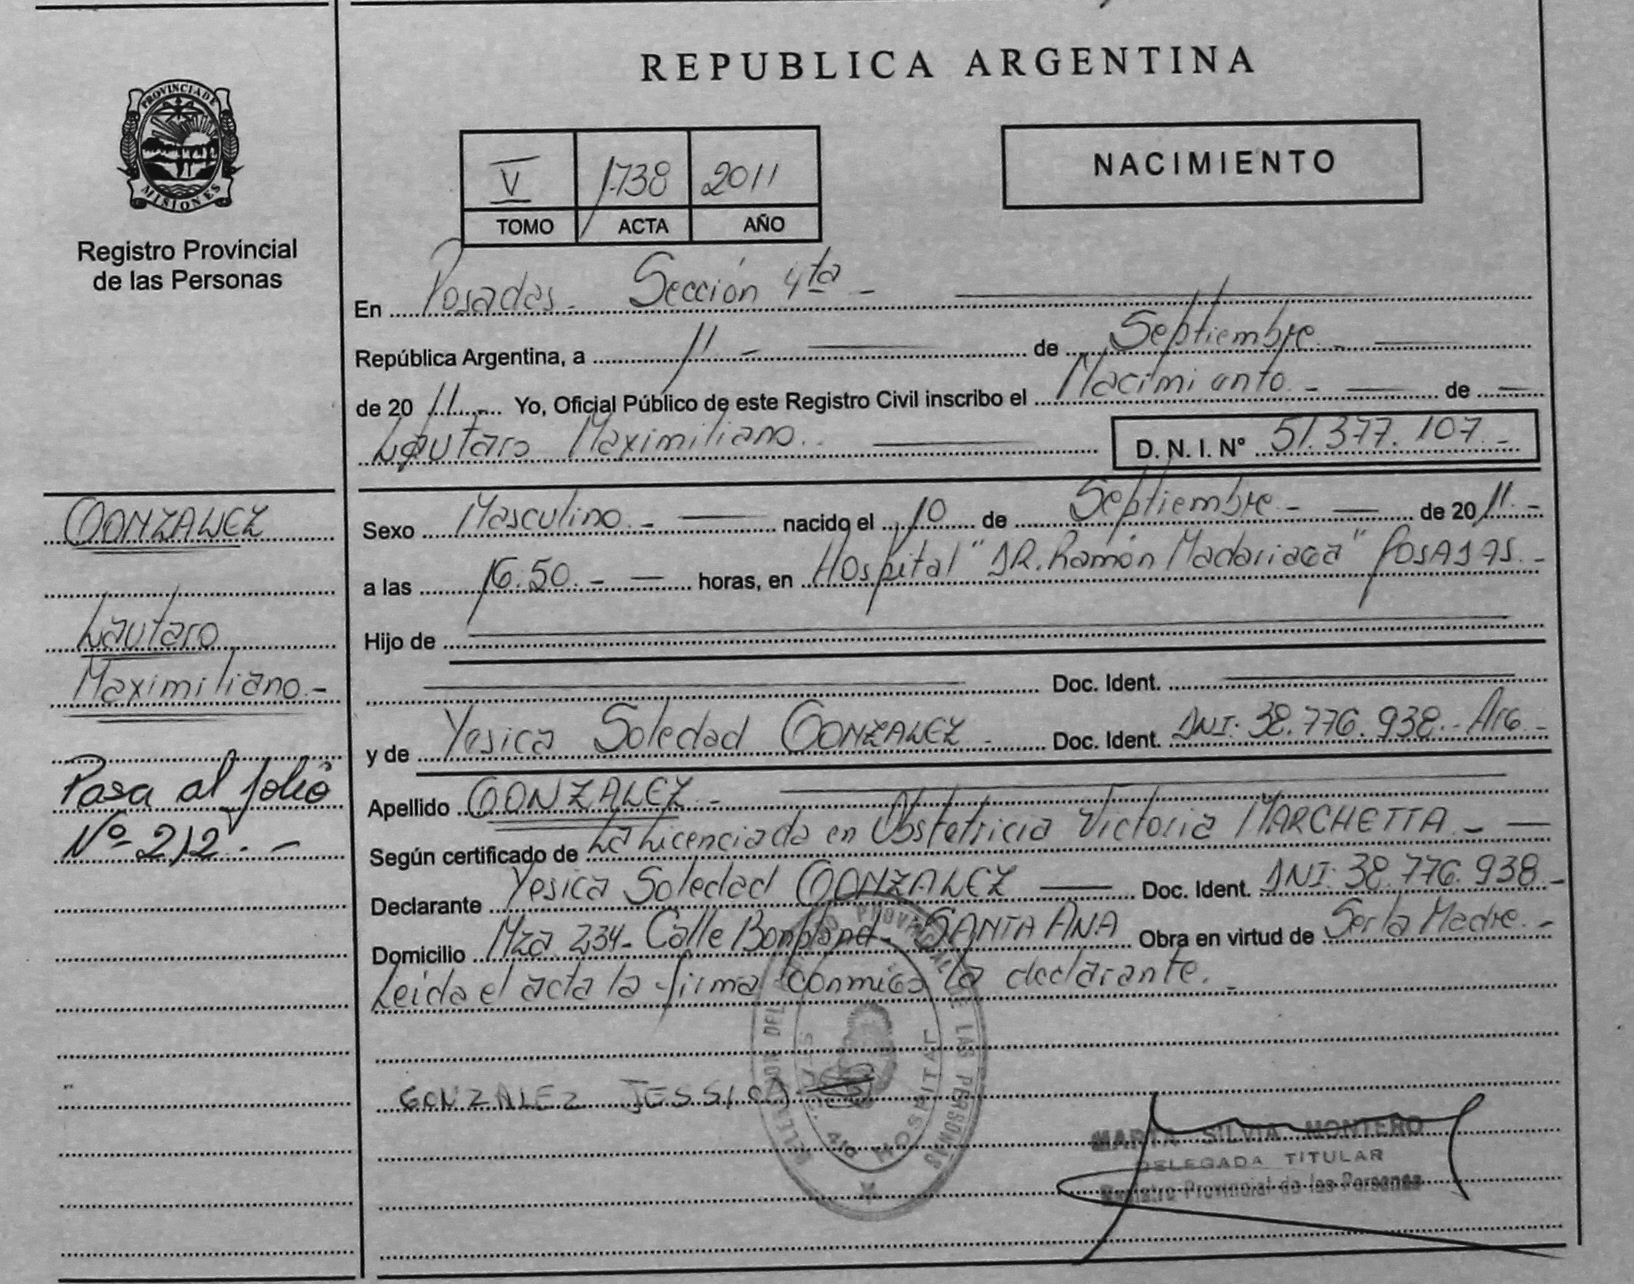 REPUBLICA ARGENTINA
PROVINCIA DE
MISIONES
Registro Provincial
de las Personas
V 1738 2011
TOMO ACTA AÑO
NACIMIENTO
En Posadas - Sección 4ta -
República Argentina, a 11 - de Septiembre -
de 20 11 - Yo, Oficial Público de este Registro Civil inscribo el Nacimiento - de
Lautaro Maximiliano. D. N. I. Nº 51.377.107 -
GONZALEZ
Lautaro
Maximiliano -
Pasa al folio
Nº 212. -
Sexo Masculino - nacido el 10 de Septiembre - de 20 11 -
a las 16.50. - horas, en Hospital "DR. Ramón Madariaga" POSADAS. -
Hijo de
Doc. Ident.
y de Yesica Soledad GONZALEZ - Doc. Ident. DNI. 38.776.938 - Arg -
Apellido GONZALEZ -
Según certificado de La Licenciada en Obstetricia Victoria MARCHETTA -
Declarante Yesica Soledad GONZALEZ Doc. Ident. DNI. 38.776.938 -
Domicilio Mza 234 - Calle Bonpland - SANTA ANA Obra en virtud de Ser la Madre. -
Leida el acta la firma conmigo la declarante. -
GONZALEZ JESSICA
PROVINCIAL DE LAS PERSONAS
HOSPITAL
MARTA SILVIA MONTERO
DELEGADA TITULAR
Registro Provincial de las Personas